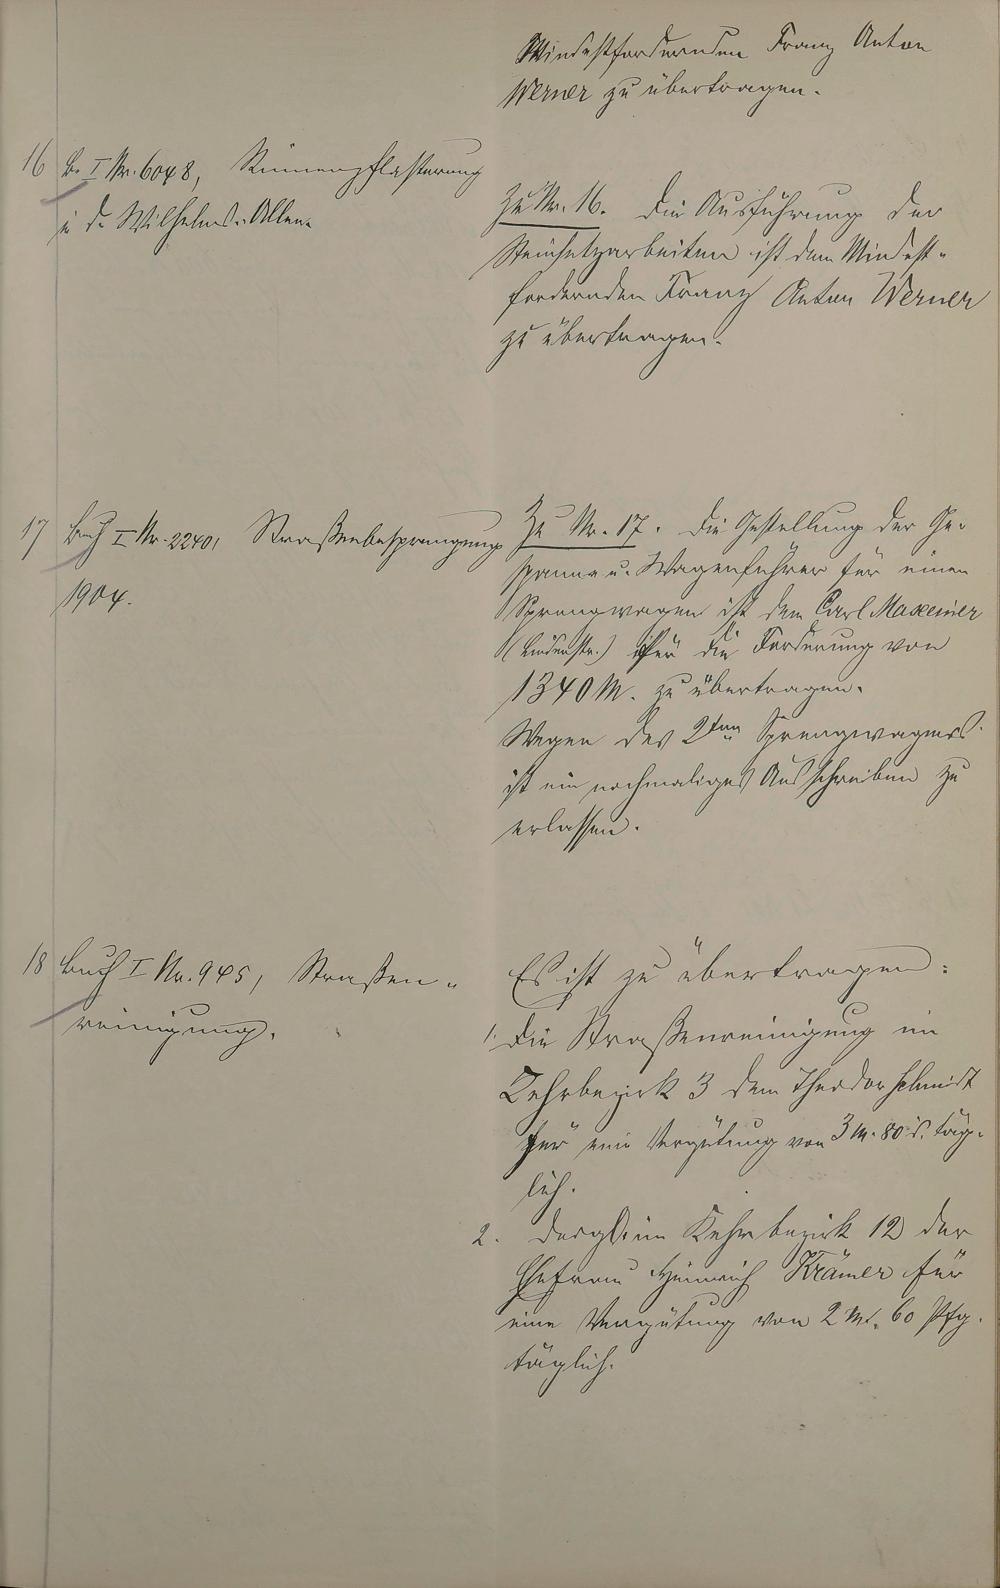 Mindestfordernden Franz Anton
Werner zu übertragen.
16 B. I Nr. 6048, Rinnenpflasterung
i. d. Wilhelms-Allee.
Zu Nr. 16. Die Ausführung der
Steinsetzarbeiten ist dem Mindest-
fordernden Franz Anton Werner
zu übertragen.
17 Buch I Nr. 2240, Straßenbesprengung
1904.
Zu Nr. 17. Die Gestellung der Ge-
spanne u. Wagenführer für einen
Sprengwagen ist dem Carl Maxeiner
(Lindenstr.) für die Forderung von
1340 M. zu übertragen.
Wegen des 2ten Sprengwagens
ist ein nochmaliges Ausschreiben zu
erlassen.
18 Buch I Nr. 945, Straßen-
reinigung.
Es ist zu übertragen:
1. die Straßenreinigung im
Kehrbezirk 3 dem Theodor Schmidt
für eine Vergütung von 3 M. 80 täg-
lich.
2. desgl. im Kehrbezirk 12 der
Ehefrau Heinrich Krämer für
eine Vergütung von 2 M. 60 Pfg.
täglich.